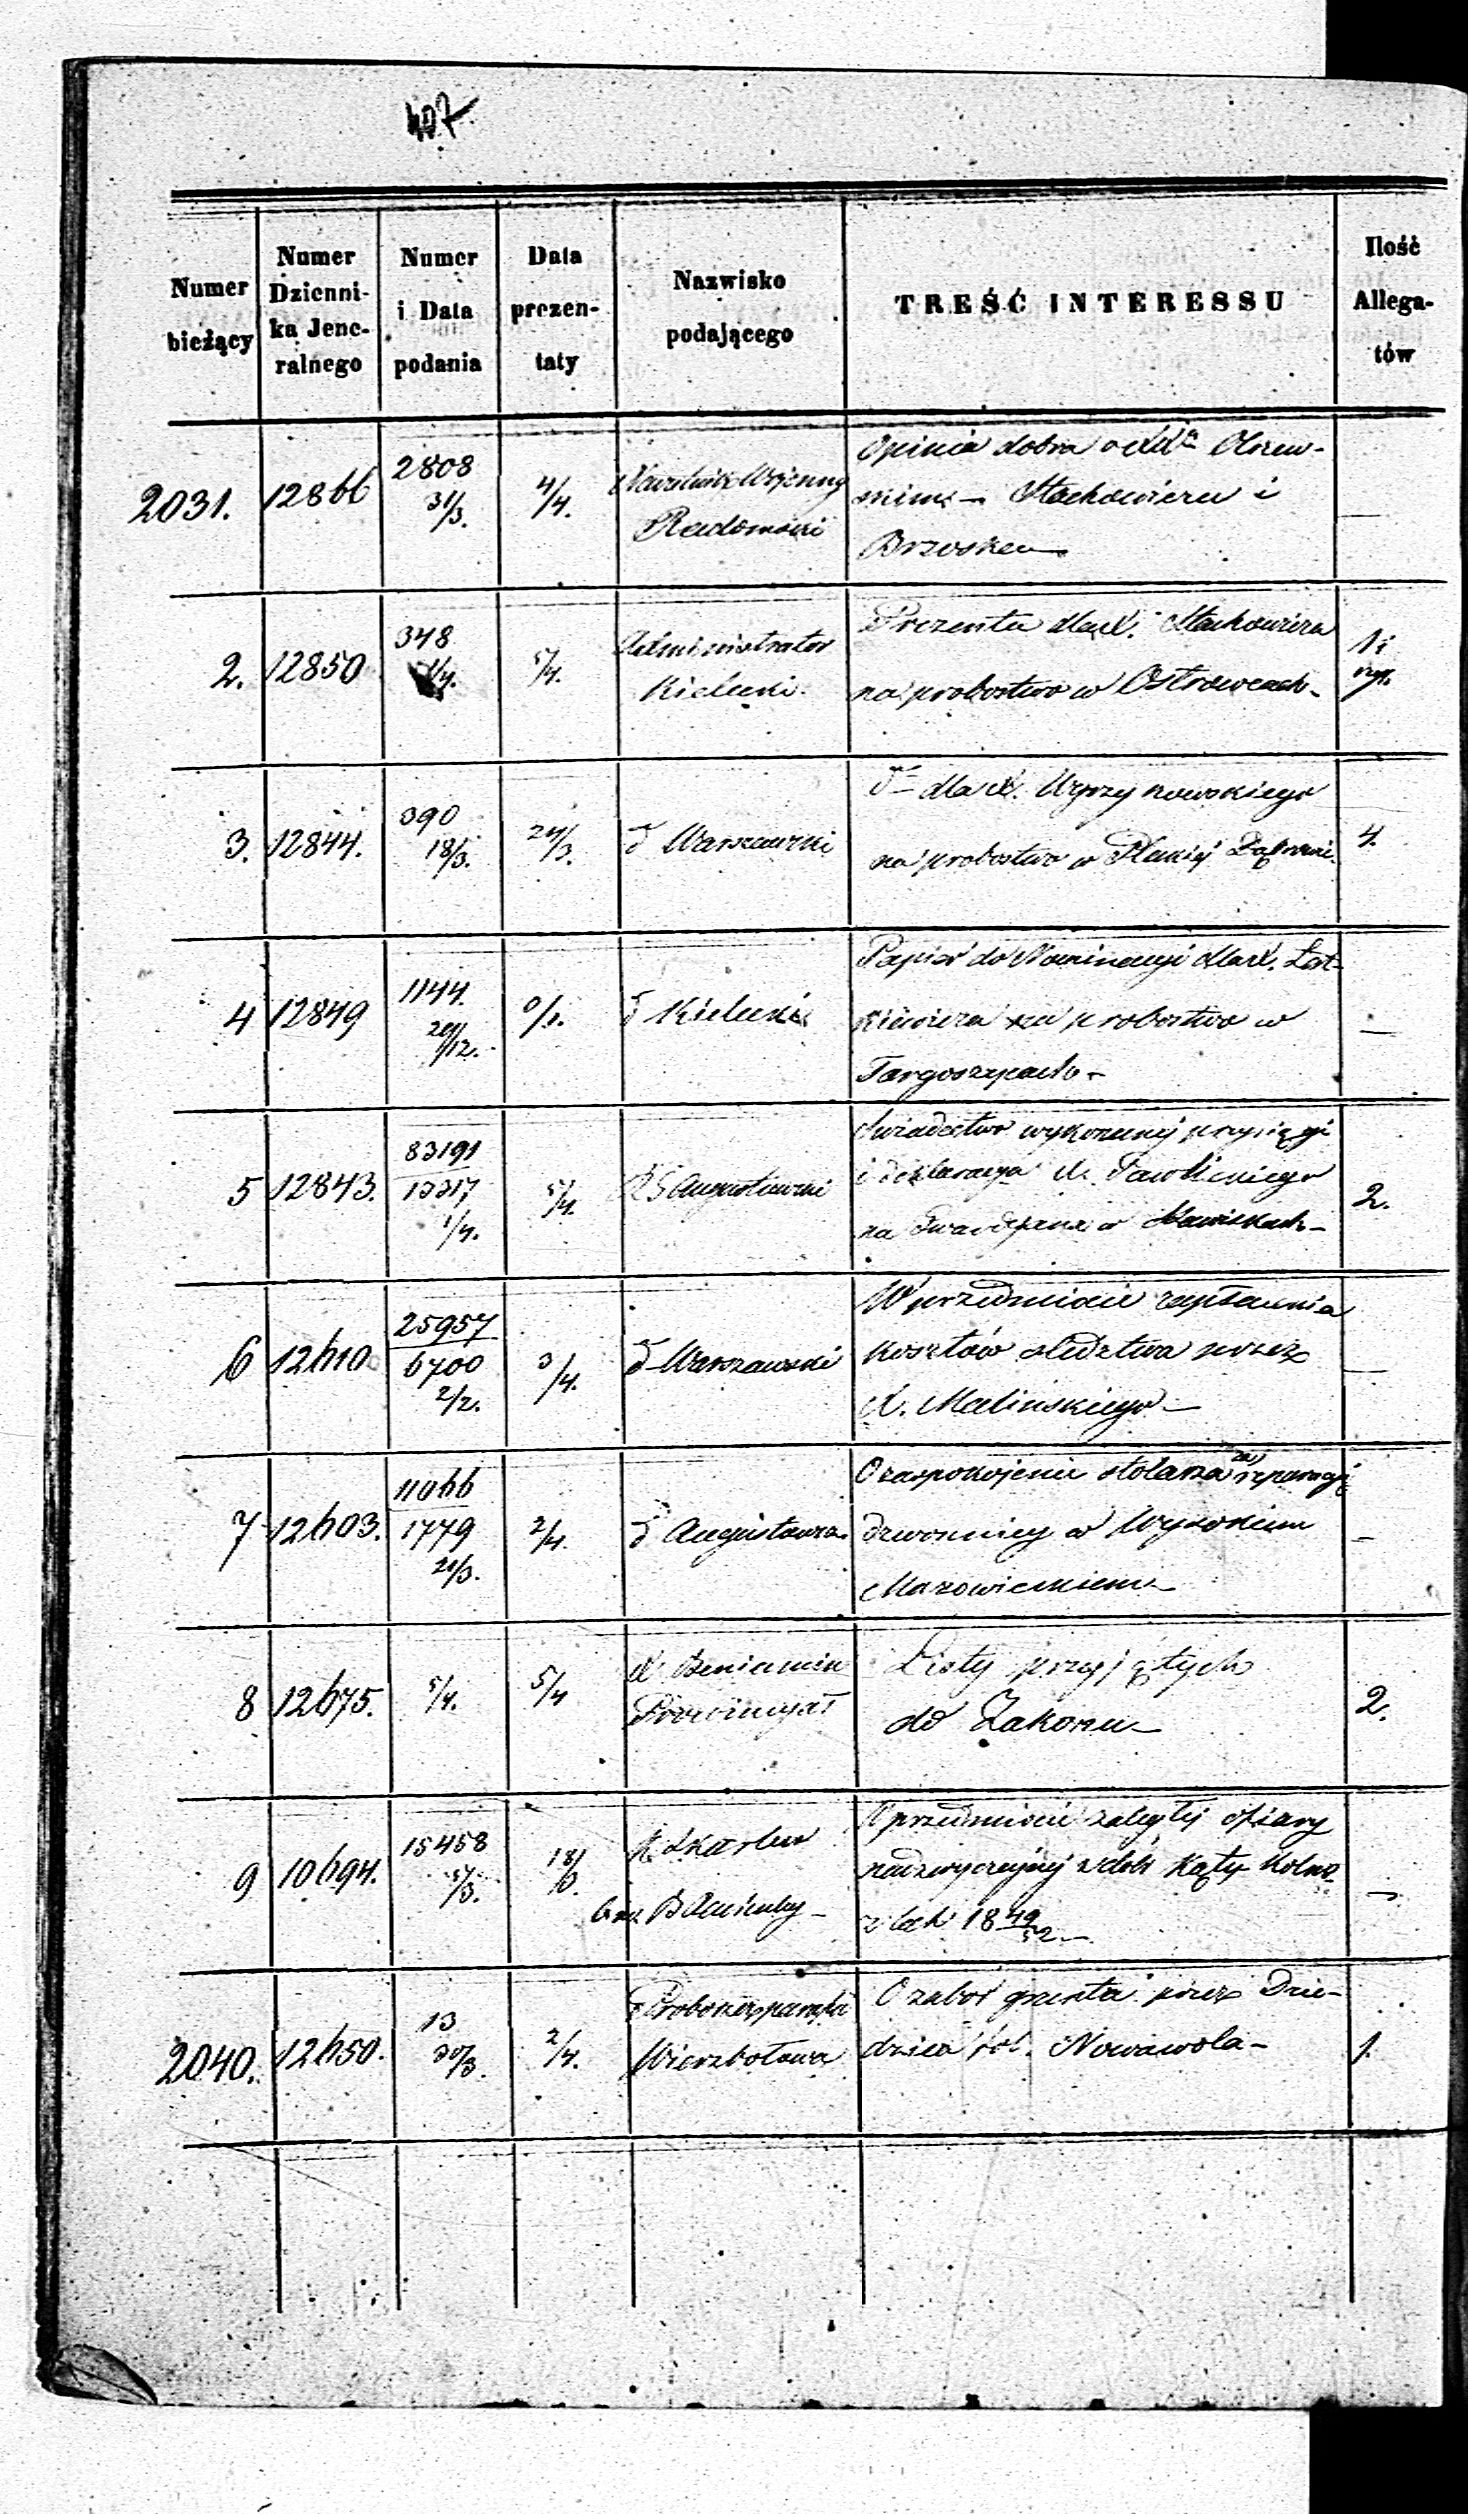 407
Numer bieżący
Numer Dzienni- ka Jene- ralnego
Numer i Data podania
Data prezen- taty
Nazwisko podającego
TREŚĆ INTERESSU
Ilość Allega- tów
2031. 12866 2808 31/3. 4/4. Naczelnik Wojenny Radomski
Opinia dobra o
Stachowiczu i
Brzosken —
2. 12850 348 1/4. 5/4. Administrator Kielecki.
Prezenta dla X. Stachowicza
na probostwo w Ostrowcach —
3. 12844. 390 18/3. 24/3. d° Warszawski
d° dla X.
na probostwo w 4.
4 12849 1144. 29/12. d° Kielecki
Papier do Nominacyi dla X. Lat-
kiewicza na probostwo w
Targoszycach — —
5 12843. 83191 13317 1/4. 5/4. R G Augustowski
Świadectwo wykonanej przysięgi
i deklaracya X. Pawlickiego
na Gwardyana w 2.
6 12610 25957 6700 2/2. 3/4. d° Warszawski
W przedmiocie zapłacenia
kosztów śledztwa przez
X. Malinskiego — —
7 12603. 11066 1779 21/3. 2/4. d° Augustowska
O zaspokojenie stolarza za reparacyę
dzwonnicy w Wysokiem
Mazowieckiem — —
8 12675. 5/4. 5/4 X. Beniamin Prowincyał
Listy przyjętych
do Zakonu — 2.
9 10694. 15458 5/3. 18/3.
W przedmiocie zaległej ofiary
nadzwyczajnej z dóbr Kąty
z lat 1849/52 — —
2040. 12650. 13 30/3. 2/4. Proboszcz parafii Wierzbołowa
O zabor gruntu przez Dzie-
dzica fol. Nowawola — 1.